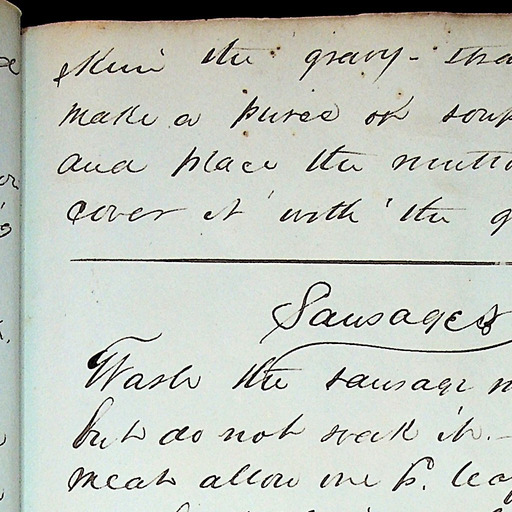 skim the gravy - stra
make a puree or soup
and place the mutto
cover it with the g
Sausages
Wash the sausage m
but do not soak it. -
meat allow one p. lea